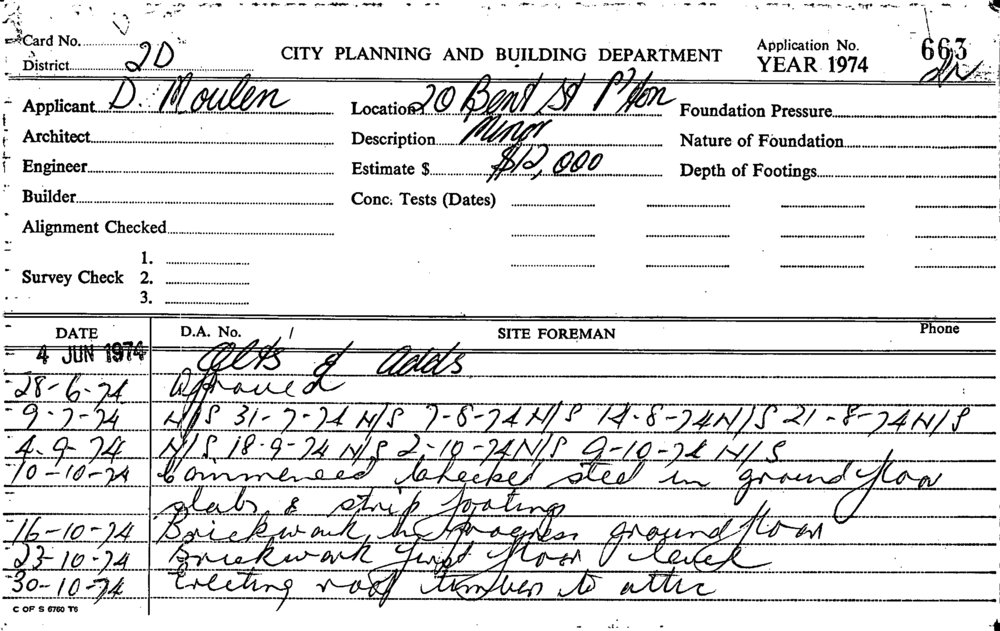 Card No.
District 2D
CITY PLANNING AND BUILDING DEPARTMENT
Application No. 663
YEAR 1974
Applicant D. Moulen
Location 20 Bent St P'ton
Foundation Pressure
Architect
Description Minor
Nature of Foundation
Engineer
Estimate $ $12,000
Depth of Footings
Builder
Conc. Tests (Dates)
Alignment Checked
Survey Check
1.
2.
3.
DATE D.A. No. / SITE FOREMAN Phone
4 JUN 1974 Alts & Adds
28-6-74 Approved
9-7-74 N/S 31-7-74 N/S 7-8-74 N/S 14-8-74 N/S 21-8-74 N/S
4-9-74 N/S 18-9-74 N/S 2-10-74 N/S 9-10-74 N/S
10-10-74 Commenced Checked steel in ground floor
slabs & strip footings
16-10-74 Brickwork in progress ground floor
23-10-74 Brickwork first floor level
30-10-74 Erecting roof timbers to attic
C OF S 6760 T6